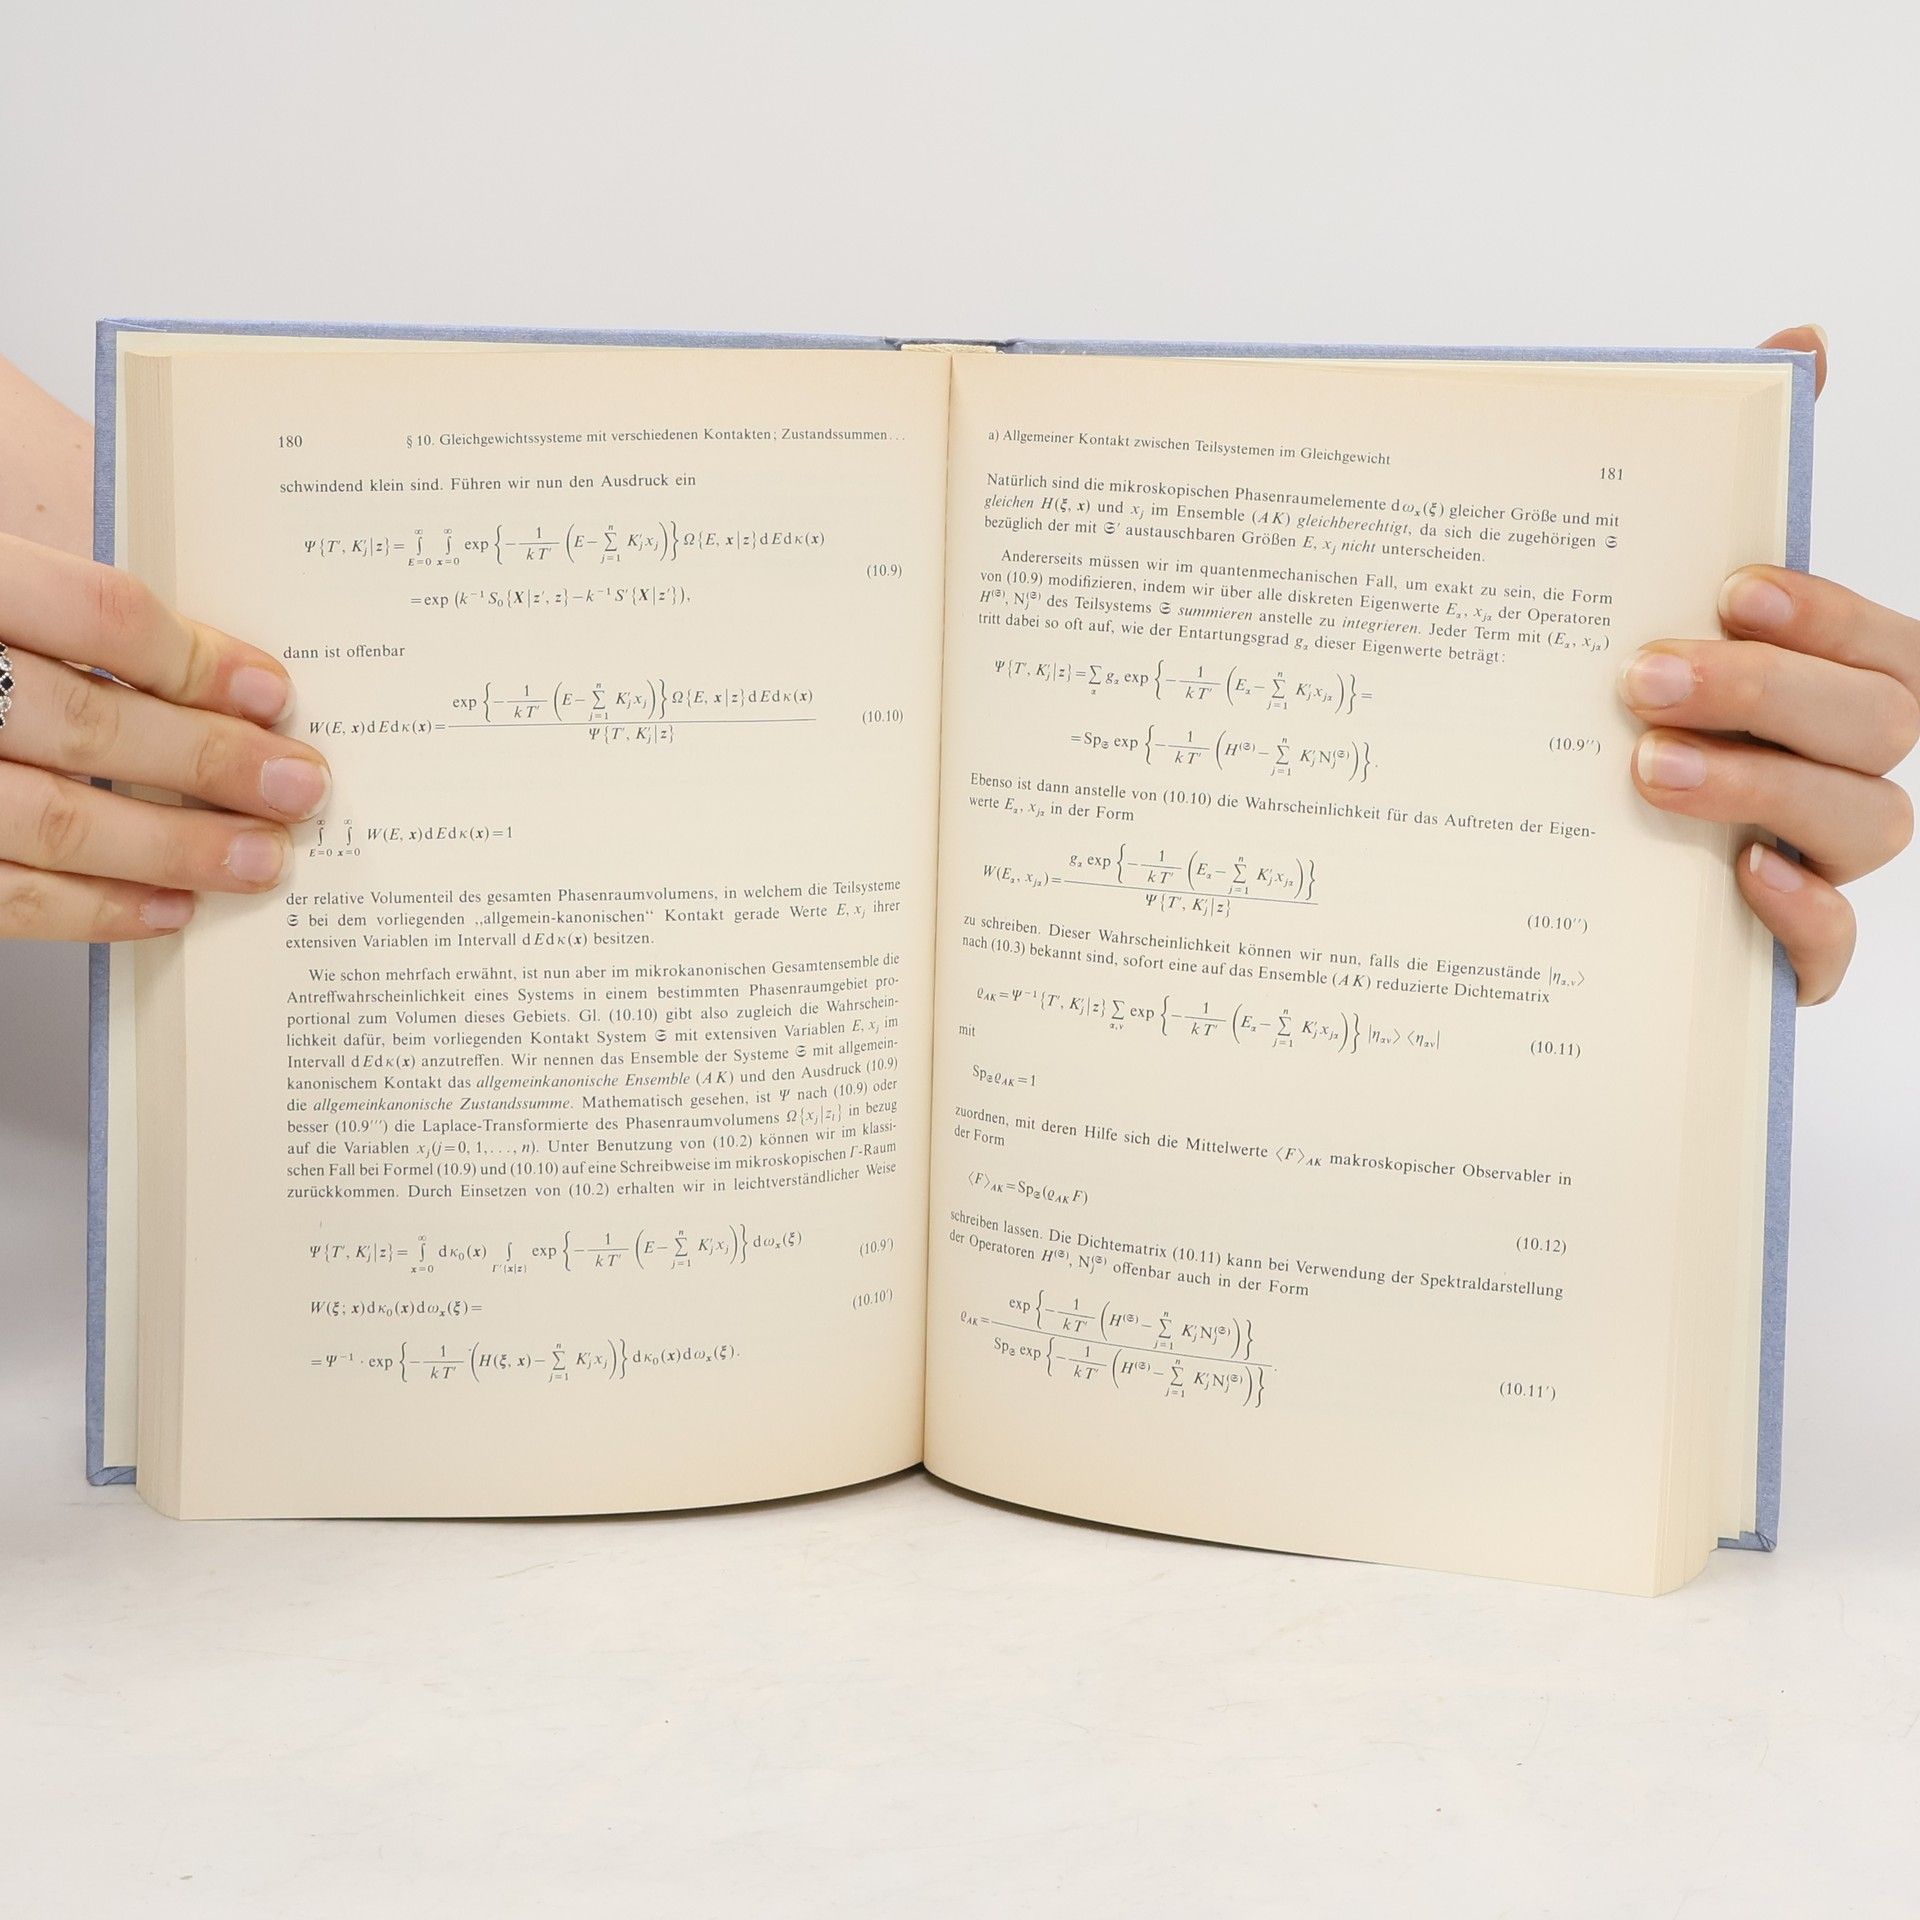 180 § 10. Gleichgewichtssysteme mit verschiedenen Kontakten; Zustandssummen...
schwindend klein sind. Führen wir nun den Ausdruck ein
Ψ{T′, K′_j|z} = ∫_{E=0}^∞ ∫_{x=0}^∞ exp {−1/(kT′) (E−∑_{j=1}^n K′_j x_j)} Ω{E, x|z} dE dκ(x)
(10.9)
=exp (k⁻¹S₀{X|z′, z}−k⁻¹S′{X|z′}),
dann ist offenbar
W(E, x)dE dκ(x)= exp {−1/(kT′) (E−∑_{j=1}^n K′_j x_j)} Ω{E, x|z} dE dκ(x) / Ψ{T′, K′_j|z} (10.10)
∫_{E=0}^∞ ∫_{x=0}^∞ W(E, x)dE dκ(x)=1
der relative Volumenteil des gesamten Phasenraumvolumens, in welchem die Teilsysteme
𝔖 bei dem vorliegenden „allgemein-kanonischen“ Kontakt gerade Werte E, x_j ihrer
extensiven Variablen im Intervall dE dκ(x) besitzen.
Wie schon mehrfach erwähnt, ist nun aber im mikrokanonischen Gesamtensemble die
Antreffwahrscheinlichkeit eines Systems in einem bestimmten Phasenraumgebiet pro-
portional zum Volumen dieses Gebiets. Gl. (10.10) gibt also zugleich die Wahrschein-
lichkeit dafür, beim vorliegenden Kontakt System 𝔖 mit extensiven Variablen E, x_j im
Intervall dE dκ(x) anzutreffen. Wir nennen das Ensemble der Systeme 𝔖 mit allgemein-
kanonischem Kontakt das allgemeinkanonische Ensemble (AK) und den Ausdruck (10.9)
die allgemeinkanonische Zustandssumme. Mathematisch gesehen, ist Ψ nach (10.9) oder
besser (10.9‴) die Laplace-Transformierte des Phasenraumvolumens Ω{x_j|z_l} in bezug
auf die Variablen x_j(j=0, 1,..., n). Unter Benutzung von (10.2) können wir im klassi-
schen Fall bei Formel (10.9) und (10.10) auf eine Schreibweise im mikroskopischen Γ-Raum
zurückkommen. Durch Einsetzen von (10.2) erhalten wir in leichtverständlicher Weise
Ψ{T′, K′_j|z} = ∫_{x=0}^∞ dκ₀(x) ∫_{Γ′{x|z}} exp {−1/(kT′) (E−∑_{j=1}^n K′_j x_j)} dω_x(ξ) (10.9′)
W(ξ; x)dκ₀(x)dω_x(ξ)= (10.10′)
=Ψ⁻¹ · exp {−1/(kT′) (H(ξ, x)−∑_{j=1}^n K′_j x_j)} dκ₀(x)dω_x(ξ).
a) Allgemeiner Kontakt zwischen Teilsystemen im Gleichgewicht 181
Natürlich sind die mikroskopischen Phasenraumelemente dω_x(ξ) gleicher Größe und mit
gleichen H(ξ, x) und x_j im Ensemble (AK) gleichberechtigt, da sich die zugehörigen 𝔖
bezüglich der mit 𝔖′ austauschbaren Größen E, x_j nicht unterscheiden.
Andererseits müssen wir im quantenmechanischen Fall, um exakt zu sein, die Form
von (10.9) modifizieren, indem wir über alle diskreten Eigenwerte E_α, x_{jα} der Operatoren
H^(𝔖), N_j^(𝔖) des Teilsystems 𝔖 summieren anstelle zu integrieren. Jeder Term mit (E_α, x_{jα})
tritt dabei so oft auf, wie der Entartungsgrad g_α dieser Eigenwerte beträgt:
Ψ{T′, K′_j|z} = ∑_α g_α exp {−1/(kT′) (E_α−∑_{j=1}^n K′_j x_{jα})} =
=Sp_𝔖 exp {−1/(kT′) (H^(𝔖)−∑_{j=1}^n K′_j N_j^(𝔖))}. (10.9″)
Ebenso ist dann anstelle von (10.10) die Wahrscheinlichkeit für das Auftreten der Eigen-
werte E_α, x_{jα} in der Form
W(E_α, x_{jα})= g_α exp {−1/(kT′) (E_α−∑_{j=1}^n K′_j x_{jα})} / Ψ{T′, K′_j|z} (10.10″)
zu schreiben. Dieser Wahrscheinlichkeit können wir nun, falls die Eigenzustände |η_{α,ν}⟩
nach (10.3) bekannt sind, sofort eine auf das Ensemble (AK) reduzierte Dichtematrix
ϱ_AK=Ψ⁻¹{T′, K′_j|z} ∑_{α,ν} exp {−1/(kT′) (E_α−∑_{j=1}^n K′_j x_{jα})} |η_{αν}⟩ ⟨η_{αν}| (10.11)
mit
Sp_𝔖 ϱ_AK=1
zuordnen, mit deren Hilfe sich die Mittelwerte ⟨F⟩_AK makroskopischer Observabler in
der Form
⟨F⟩_AK=Sp_𝔖(ϱ_AK F) (10.12)
schreiben lassen. Die Dichtematrix (10.11) kann bei Verwendung der Spektraldarstellung
der Operatoren H^(𝔖), N_j^(𝔖) offenbar auch in der Form
ϱ_AK= exp {−1/(kT′) (H^(𝔖)−∑_{j=1}^n K′_j N_j^(𝔖))} / Sp_𝔖 exp {−1/(kT′) (H^(𝔖)−∑_{j=1}^n K′_j N_j^(𝔖))}. (10.11′)